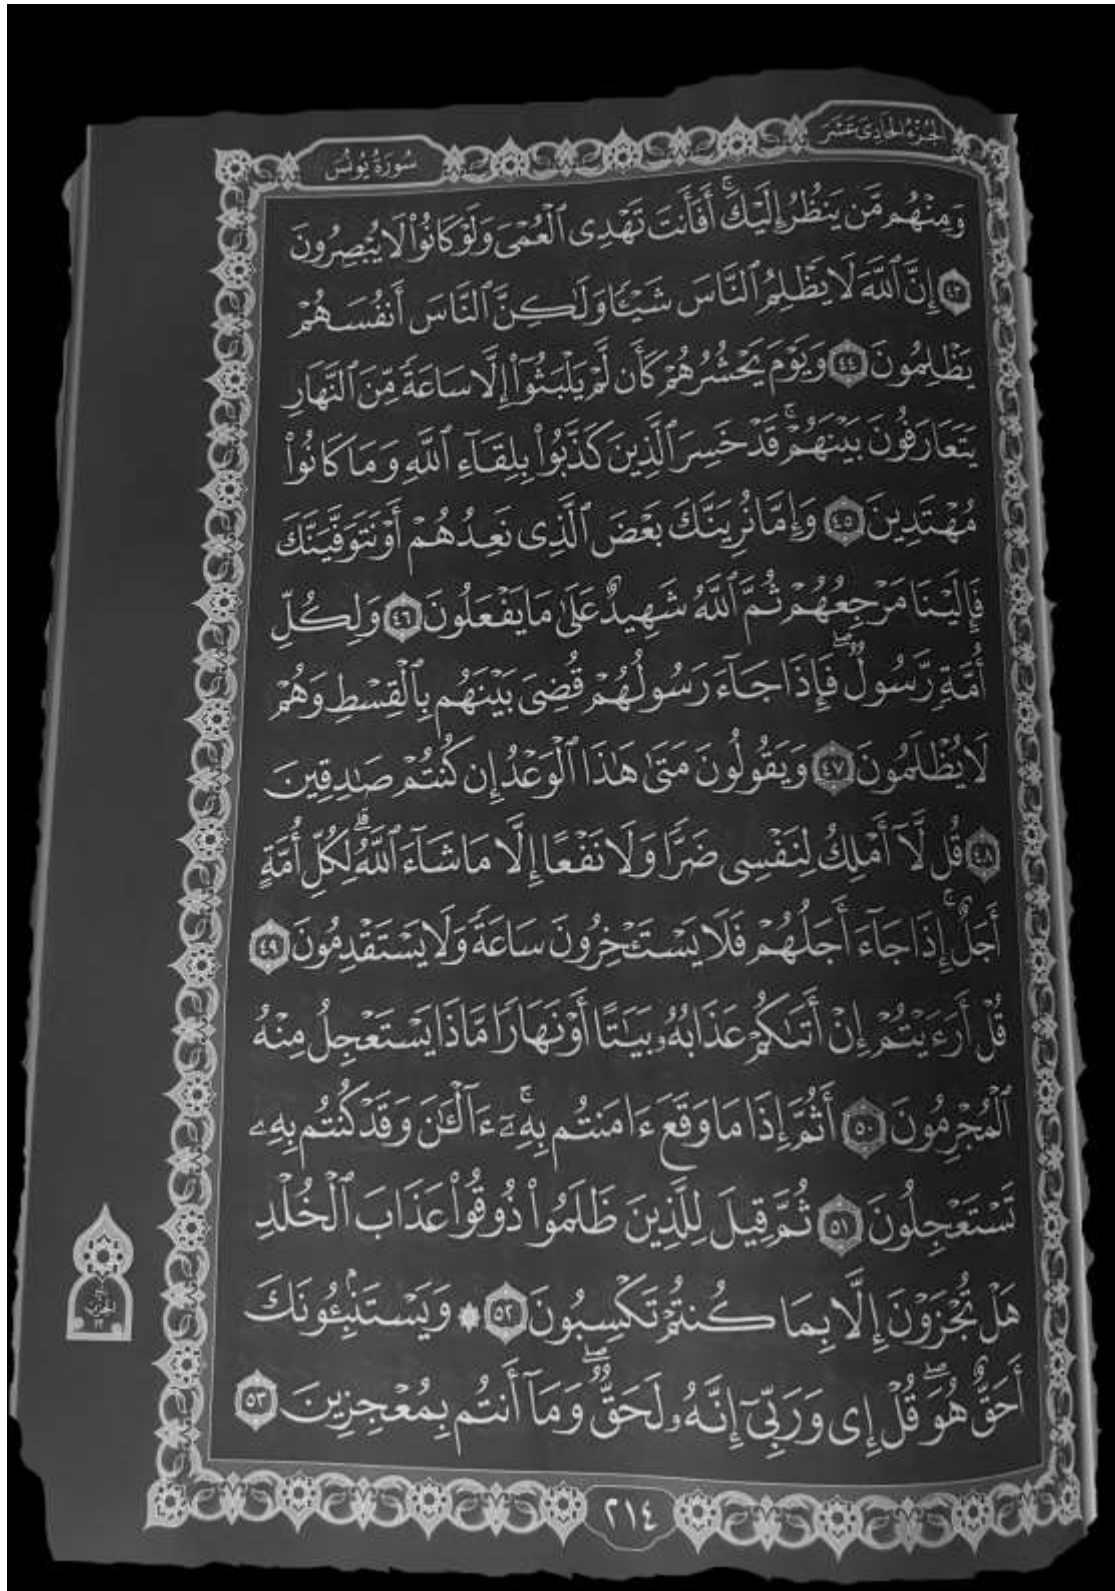 الجزء الحادي عشر
سورة يونس
وَمِنْهُم مَّن يَنظُرُ إِلَيْكَ ۚ أَفَأَنتَ تَهْدِى ٱلْعُمْىَ وَلَوْ كَانُوا۟ لَا يُبْصِرُونَ
٤٣ إِنَّ ٱللَّهَ لَا يَظْلِمُ ٱلنَّاسَ شَيْـًٔا وَلَـٰكِنَّ ٱلنَّاسَ أَنفُسَهُمْ
يَظْلِمُونَ ٤٤ وَيَوْمَ يَحْشُرُهُمْ كَأَن لَّمْ يَلْبَثُوٓا۟ إِلَّا سَاعَةً مِّنَ ٱلنَّهَارِ
يَتَعَارَفُونَ بَيْنَهُمْ ۚ قَدْ خَسِرَ ٱلَّذِينَ كَذَّبُوا۟ بِلِقَآءِ ٱللَّهِ وَمَا كَانُوا۟
مُهْتَدِينَ ٤٥ وَإِمَّا نُرِيَنَّكَ بَعْضَ ٱلَّذِى نَعِدُهُمْ أَوْ نَتَوَفَّيَنَّكَ
فَإِلَيْنَا مَرْجِعُهُمْ ثُمَّ ٱللَّهُ شَهِيدٌ عَلَىٰ مَا يَفْعَلُونَ ٤٦ وَلِكُلِّ
أُمَّةٍ رَّسُولٌ ۖ فَإِذَا جَآءَ رَسُولُهُمْ قُضِىَ بَيْنَهُم بِٱلْقِسْطِ وَهُمْ
لَا يُظْلَمُونَ ٤٧ وَيَقُولُونَ مَتَىٰ هَـٰذَا ٱلْوَعْدُ إِن كُنتُمْ صَـٰدِقِينَ
٤٨ قُل لَّآ أَمْلِكُ لِنَفْسِى ضَرًّا وَلَا نَفْعًا إِلَّا مَا شَآءَ ٱللَّهُ ۗ لِكُلِّ أُمَّةٍ
أَجَلٌ ۚ إِذَا جَآءَ أَجَلُهُمْ فَلَا يَسْتَـْٔخِرُونَ سَاعَةً وَلَا يَسْتَقْدِمُونَ ٤٩
قُلْ أَرَءَيْتُمْ إِنْ أَتَىٰكُمْ عَذَابُهُۥ بَيَـٰتًا أَوْ نَهَارًا مَّاذَا يَسْتَعْجِلُ مِنْهُ
ٱلْمُجْرِمُونَ ٥٠ أَثُمَّ إِذَا مَا وَقَعَ ءَامَنتُم بِهِۦٓ ۚ ءَآلْـَٔـٰنَ وَقَدْ كُنتُم بِهِۦ
تَسْتَعْجِلُونَ ٥١ ثُمَّ قِيلَ لِلَّذِينَ ظَلَمُوا۟ ذُوقُوا۟ عَذَابَ ٱلْخُلْدِ
هَلْ تُجْزَوْنَ إِلَّا بِمَا كُنتُمْ تَكْسِبُونَ ٥٢ ۞ وَيَسْتَنۢبِـُٔونَكَ
أَحَقٌّ هُوَ ۖ قُلْ إِى وَرَبِّىٓ إِنَّهُۥ لَحَقٌّ ۖ وَمَآ أَنتُم بِمُعْجِزِينَ ٥٣
٢١٤